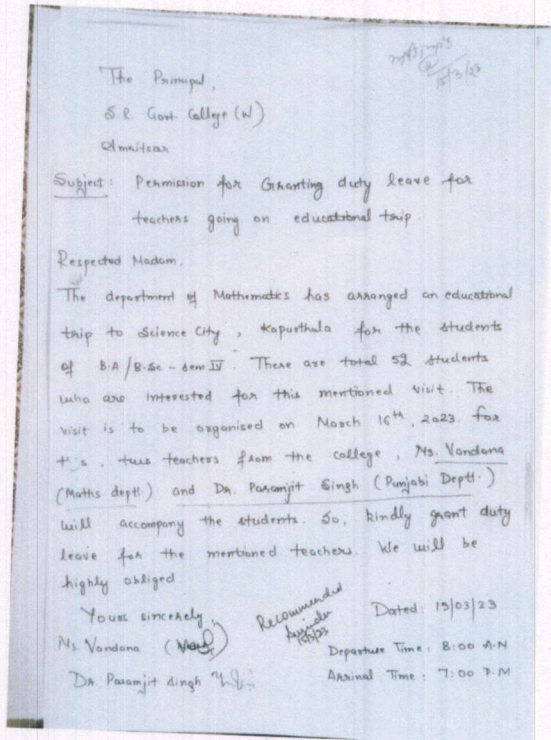 15/3/23
The Principal,
S.R. Govt. College (W)
Amritsar
Subject: Permission for Granting duty leave for
teachers going on educational trip
Respected Madam,
The department of Mathematics has arranged an educational
trip to Science City, Kapurthala for the students
of B.A/B.Sc - Sem IV. There are total 52 students
who are interested for this mentioned visit. The
visit is to be organised on March 16th, 2023. For
two teachers from the college, Ms. Vandana
(Maths deptt.) and Dr. Paramjit Singh (Punjabi Deptt.)
will accompany the students. So, kindly grant duty
leave for the mentioned teachers. We will be
highly obliged
Yours sincerely,
Recommended
Dated: 15/03/23
Ms. Vandana
15/3/23
Departure Time: 8:00 A.M
Dr. Paramjit Singh
Arrival Time: 7:00 P.M